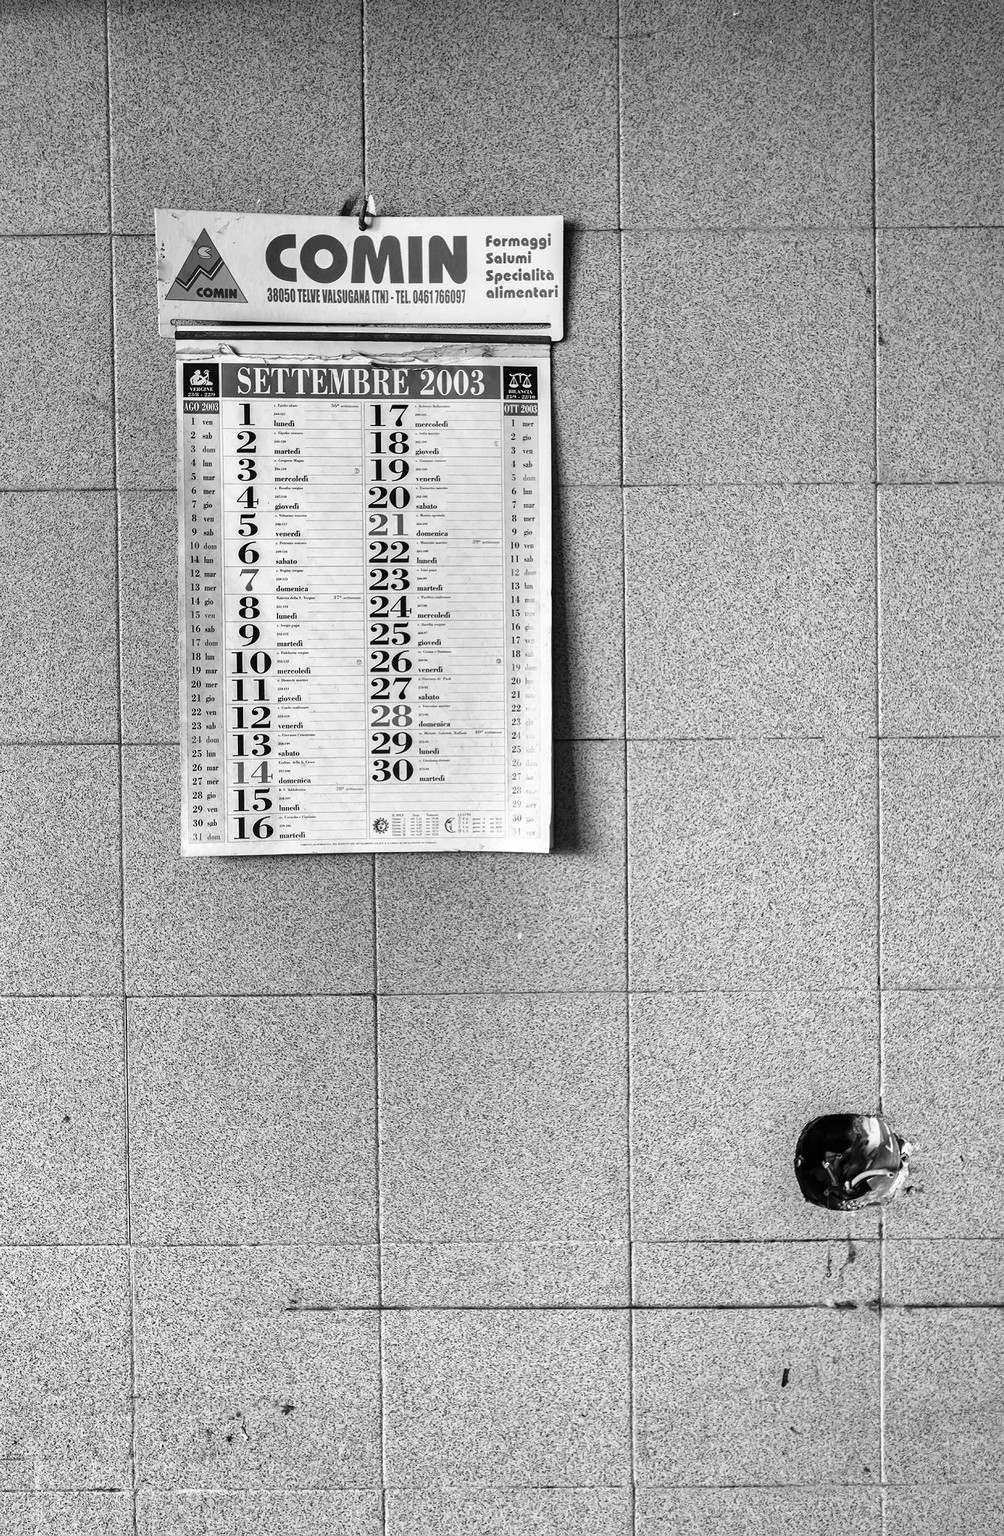 COMIN
Formaggi
Salumi
Specialità
alimentari
COMIN
38050 TELVE VALSUGANA (TN) - TEL. 0461 766097
VERGINE
23/8 - 22/9
SETTEMBRE 2003
BILANCIA
23/9 - 22/10
AGO 2003
1 ven
2 sab
3 dom
4 lun
5 mar
6 mer
7 gio
8 ven
9 sab
10 dom
11 lun
12 mar
13 mer
14 gio
15 ven
16 sab
17 dom
18 lun
19 mar
20 mer
21 gio
22 ven
23 sab
24 dom
25 lun
26 mar
27 mer
28 gio
29 ven
30 sab
31 dom
1 lunedì
36ª settimana
2 martedì
3 mercoledì
4 giovedì
5 venerdì
6 sabato
7 domenica
8 lunedì
37ª settimana
9 martedì
10 mercoledì
11 giovedì
12 venerdì
13 sabato
14 domenica
15 lunedì
38ª settimana
16 martedì
17 mercoledì
18 giovedì
19 venerdì
20 sabato
21 domenica
22 lunedì
39ª settimana
23 martedì
24 mercoledì
25 giovedì
26 venerdì
27 sabato
28 domenica
29 lunedì
40ª settimana
30 martedì
OTT 2003
1 mer
2 gio
3 ven
4 sab
5 dom
6 lun
7 mar
8 mer
9 gio
10 ven
11 sab
12 dom
13 lun
14 mar
15 mer
16 gio
17 ven
18 sab
19 dom
20 lun
21 mar
22
23 gio
24
25 sab
26 dom
27 lun
28
29
30 gio
31